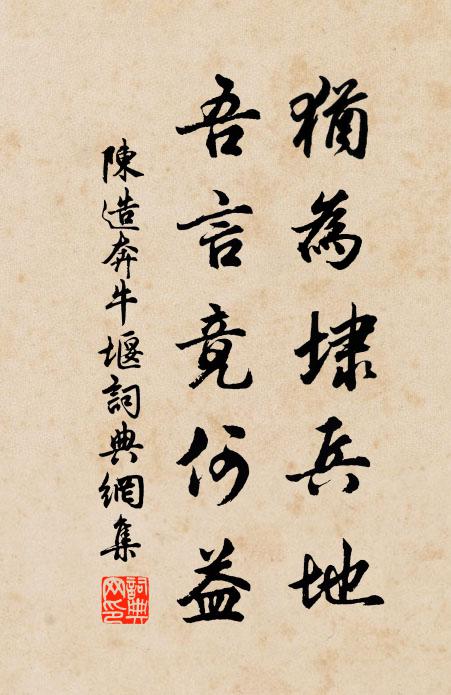 猶為埭兵地
吾言竟何益
陳造奔牛堰詞典網集
詞典網印